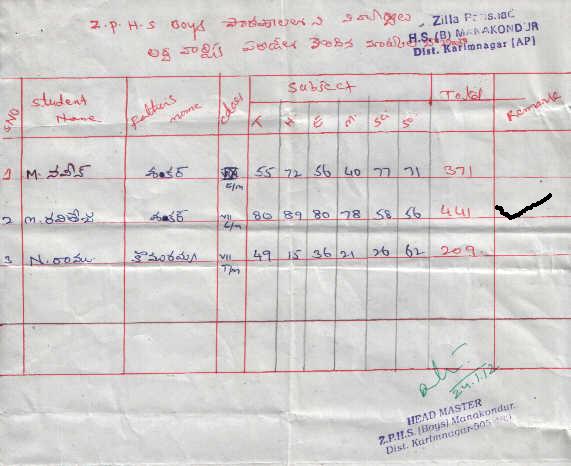 Z.P.H.S Boys పాఠశాలలు
Zilla Parishad
H.S. (B) MANAKONDUR
Dist. Karimnagar (AP)
S.NO Student Name Father's name class Subject Total Remarks
T H E M. Sci So.
1 M. నవీన్ శంకర్ E/m 55 72 56 40 77 71 371
2 M. శంకర్ VII E/m 80 89 80 78 58 56 441
3 N. రాము కొమురయ్య VII T/m 49 15 36 21 26 62 209
24.1.12
HEAD MASTER
Z.P.H.S. (Boys) Manakondur.
Dist. Karimnagar-505